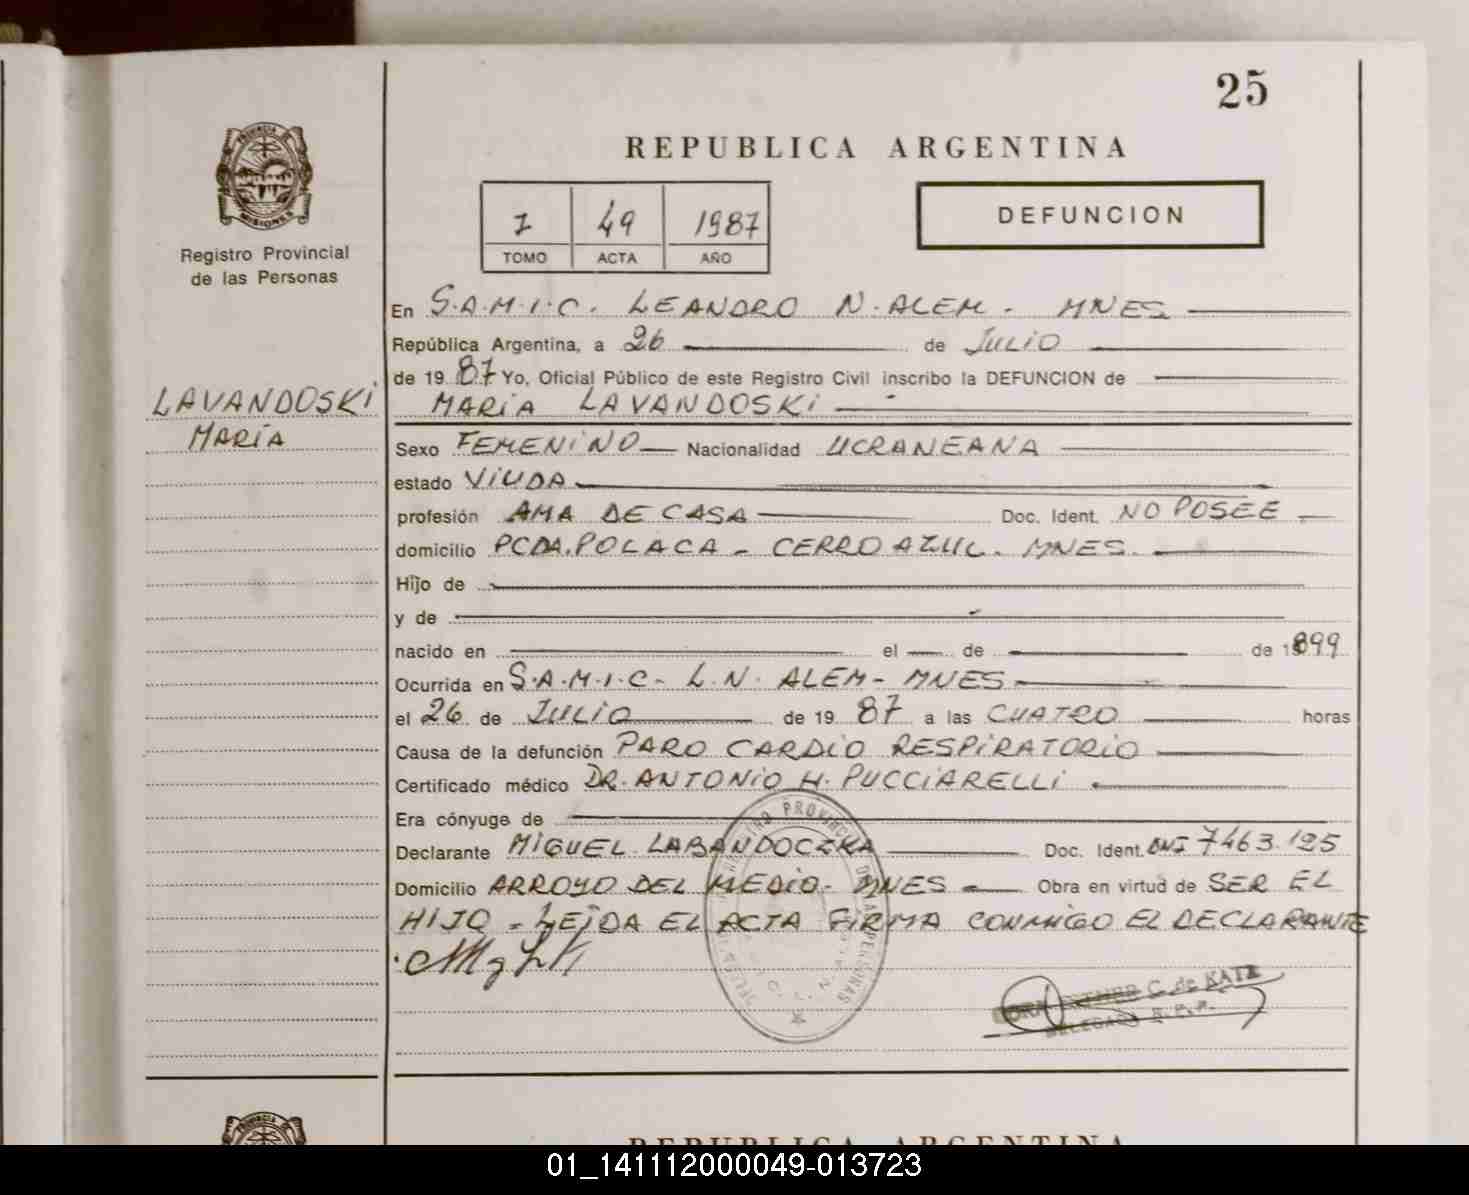 25
REPUBLICA ARGENTINA
PROVINCIA DE
MISIONES
Registro Provincial
de las Personas
1 49 1987
TOMO ACTA AÑO
DEFUNCION
LAVANDOSKI
MARÍA
En S.A.M.I.C. LEANDRO N. ALEM - MNES
República Argentina, a 26 de JULIO
de 19 87 Yo, Oficial Público de este Registro Civil inscribo la DEFUNCION de
MARÍA LAVANDOSKI
Sexo FEMENINO Nacionalidad UCRANEANA
estado VIUDA
profesión AMA DE CASA Doc. Ident. NO POSEE
domicilio PCDA. POLACA - CERRO AZUL - MNES.
Hijo de
y de
nacido en el de de 1899
Ocurrida en S.A.M.I.C - L.N. ALEM - MNES
el 26 de JULIO de 19 87 a las CUATRO horas
Causa de la defunción PARO CARDIO RESPIRATORIO
Certificado médico DR. ANTONIO H. PUCCIARELLI
Era cónyuge de
Declarante MIGUEL LABANDOCZKA Doc. Ident. DNI 7463.195
Domicilio ARROYO DEL MEDIO - MNES Obra en virtud de SER EL
HIJO - LEIDA EL ACTA FIRMA CONMIGO EL DECLARANTE
C. de KATZ
DELEGADA R.P.P.
REPUBLICA ARGENTINA
01_141112000049-013723